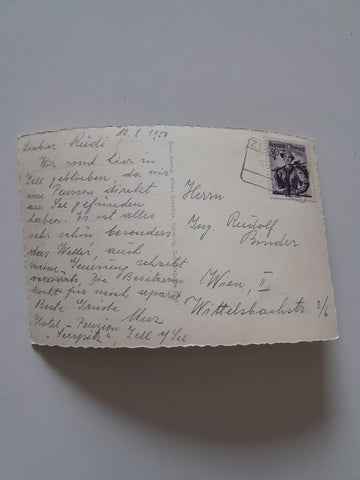 10.8.1950
Lieber Rudi!
Wir sind hier in
Zell geblieben, da wir
eine Pension direkt
am See gefunden
haben. Es ist alles
sehr schön besonders
das Wetter, auch
meine "Steuerung" schreitet
vorwärts. Die Besitzerin
kocht für mich separat.
Beste Grüsse
Hotel-Pension
"Seespitz", Zell a/See
Herrn
Ing. Rudolf
Binder
Wien, II
Wittelsbachstr. 3/6